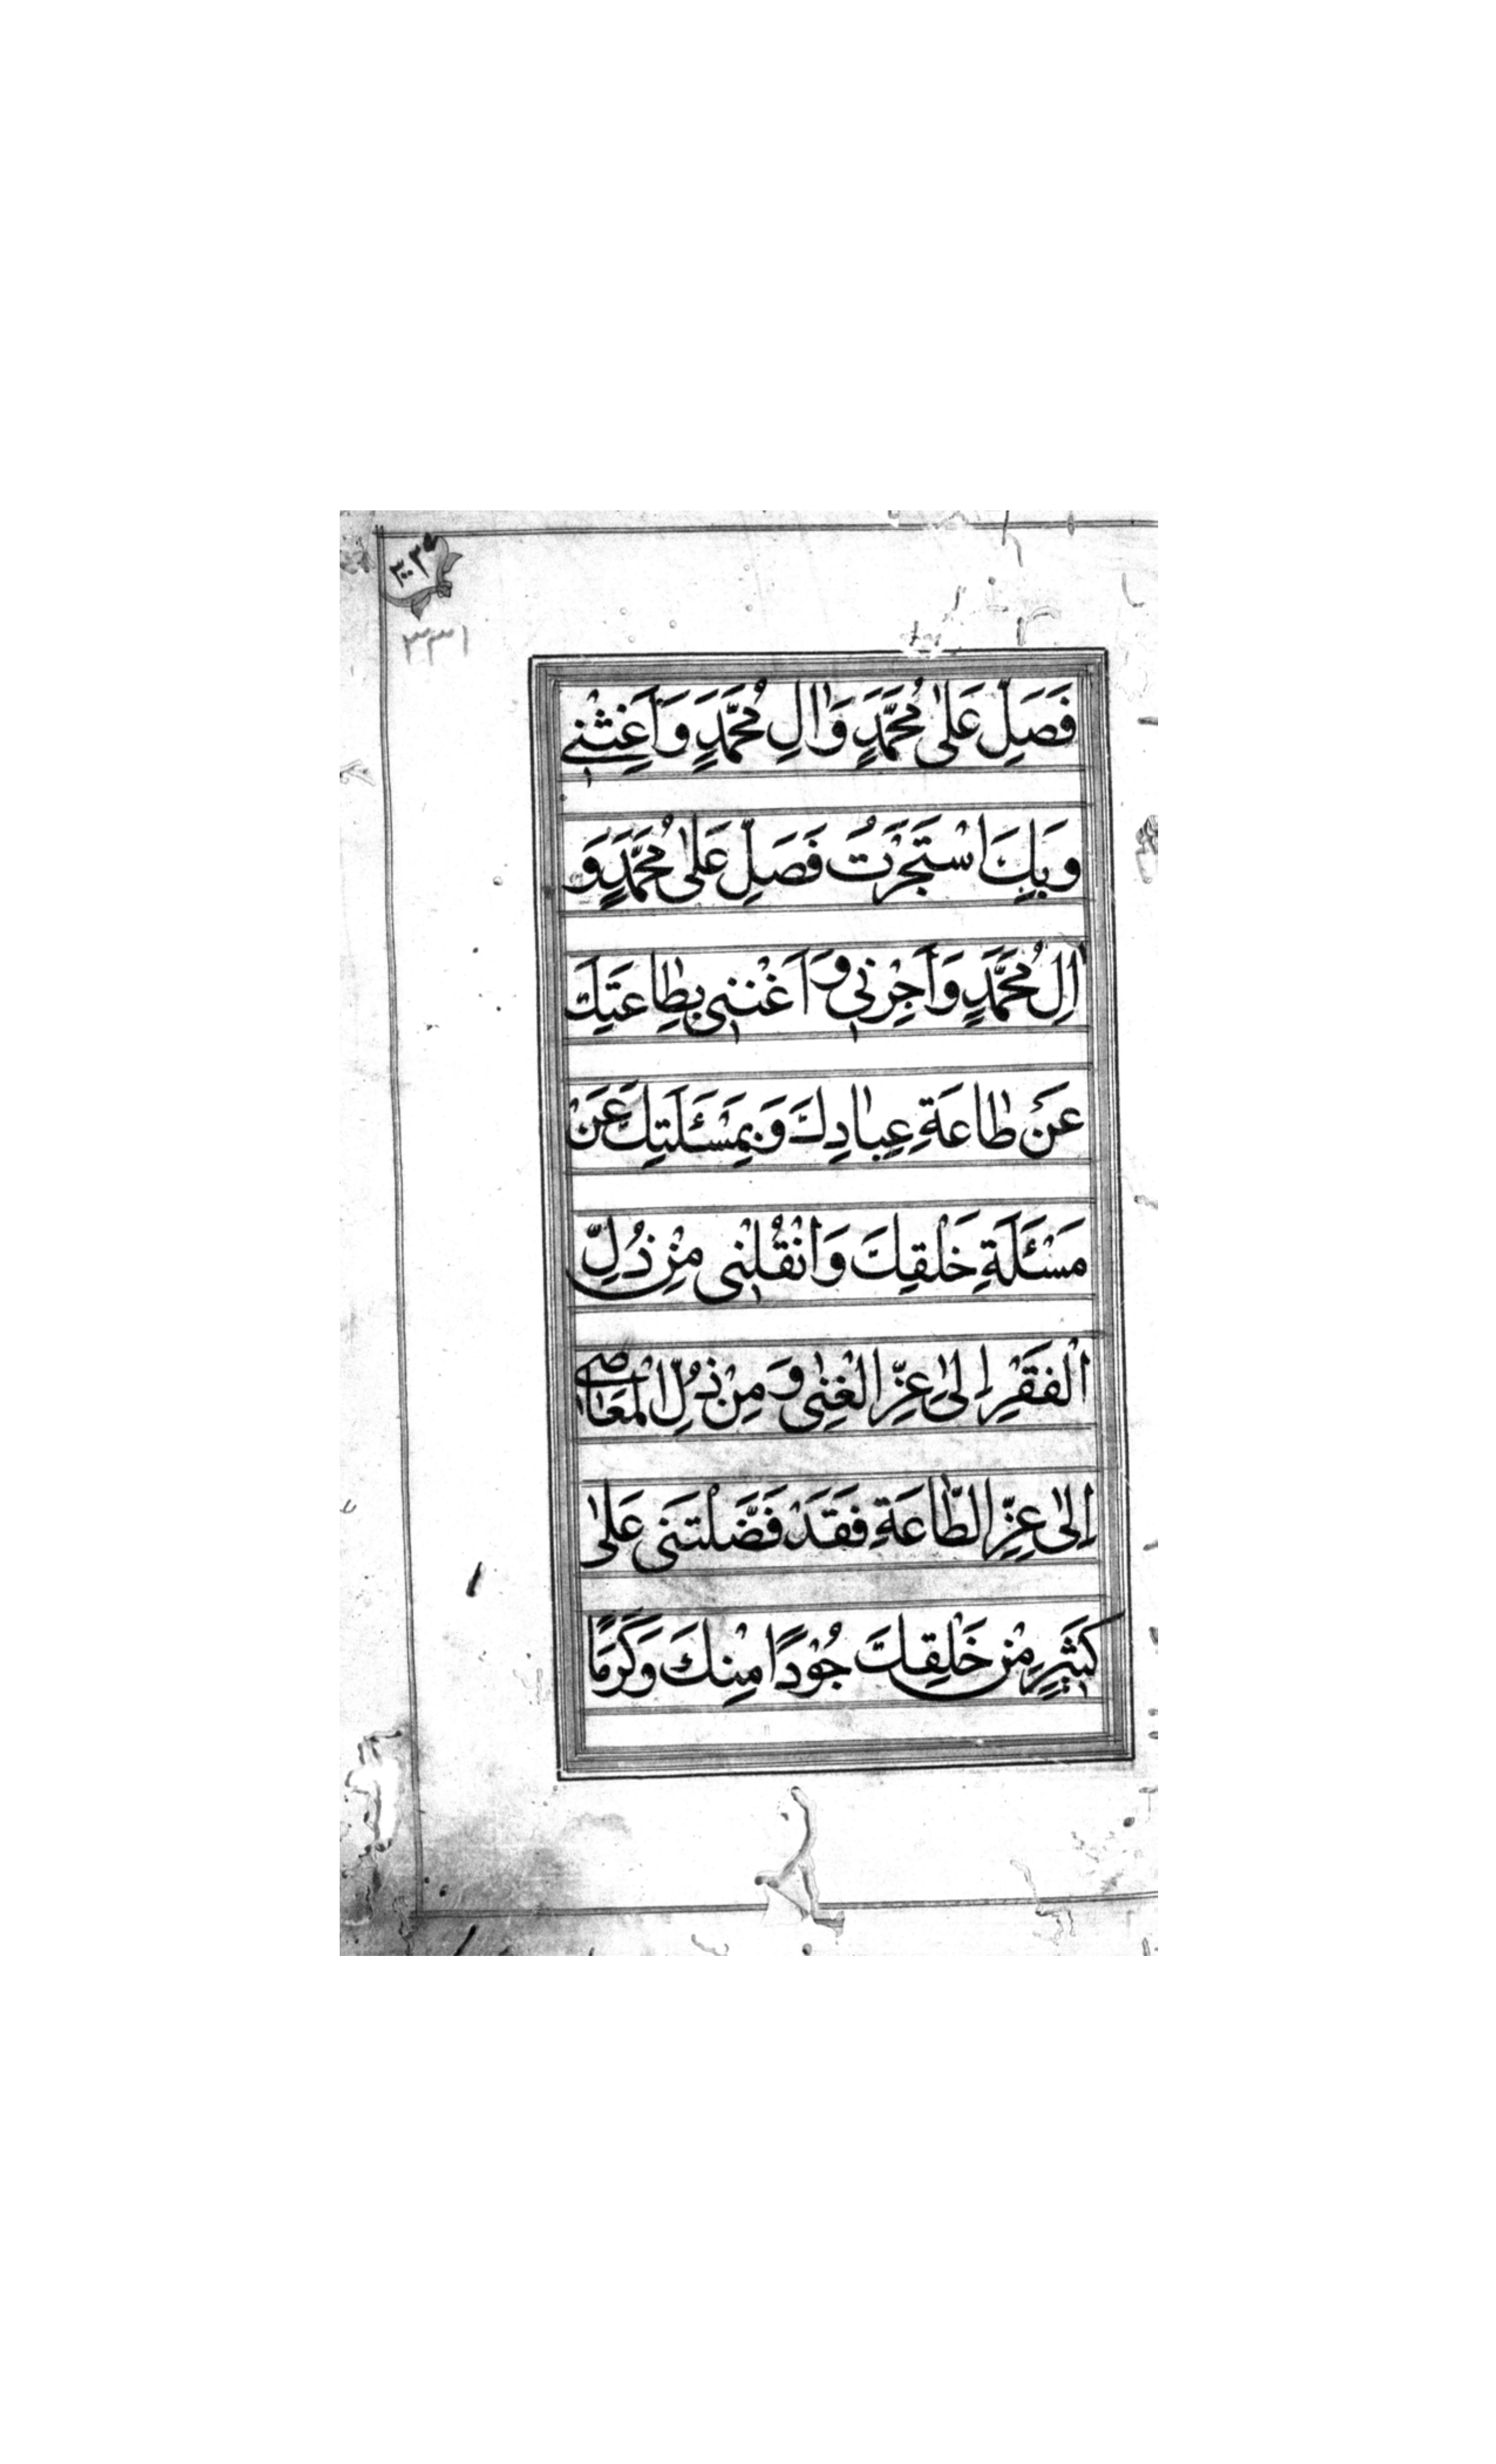 ۳۳۱
فَصَلِّ عَلىٰ مُحَمَّدٍ وَاٰلِ مُحَمَّدٍ وَاَغِثْنِي
وَبِكَ اسْتَجَرْتُ فَصَلِّ عَلىٰ مُحَمَّدٍ وَ
اٰلِ مُحَمَّدٍ وَاَجِرْنِي وَاَغْنِنِي بِطاعَتِكَ
عَنْ طاعَةِ عِبادِكَ وَبِمَسْئَلَتِكَ عَنْ
مَسْئَلَةِ خَلْقِكَ وَانْقُلْنِي مِنْ ذُلِّ
الْفَقْرِ اِلىٰ عِزِّ الْغِنىٰ وَمِنْ ذُلِّ الْمَعاصِي
اِلىٰ عِزِّ الطّاعَةِ فَقَدْ فَضَّلْتَنِي عَلىٰ
كَثِيرٍ مِنْ خَلْقِكَ جُوْدًا مِنْكَ وَكَرَمًا